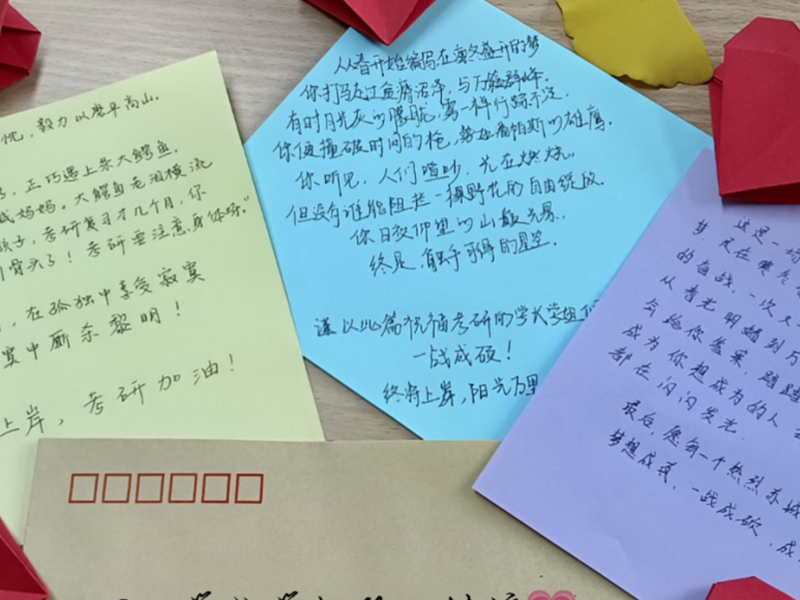 忱，毅力以攀平高山。
，正巧遇上条大鳄鱼，
妈妈。大鳄鱼老泪横流
孩子，考研复习才几个月，你
骨头了！考研要注意身体呀。"
，在孤独中享受寂寞
寞中厮杀黎明！
上岸，考研加油！
从春开始编写在凛冬盛开的梦
你打马走过血腐沼泽，与万般群峰。
有时月光灰的朦胧，写一样行踏不定
你便撞破时间的枪，势在帕斯的雄鹰。
你听见，人们喧吵，光在燃烧。
但没有谁能阻拦一棵野花的自由绽放
你日夜仰望的山数无易，
终见，触手可得的星空。
谨以此篇祝福考研的学长学姐们
一战成硕！
终将上岸，阳光万里
这是一场
梦，是在寒冬
的奋战，一次又一
从春光明媚到
会给你答案，踏踏
成为你想成为的人
都在闪闪发光
最后，愿每一个热烈赤诚
梦想成真，一战成硕，成